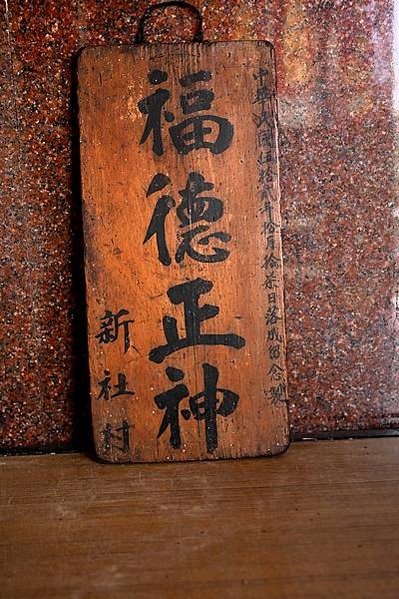 中華民國伍拾年拾月拾柒日落成留念製
福德正神
新社村